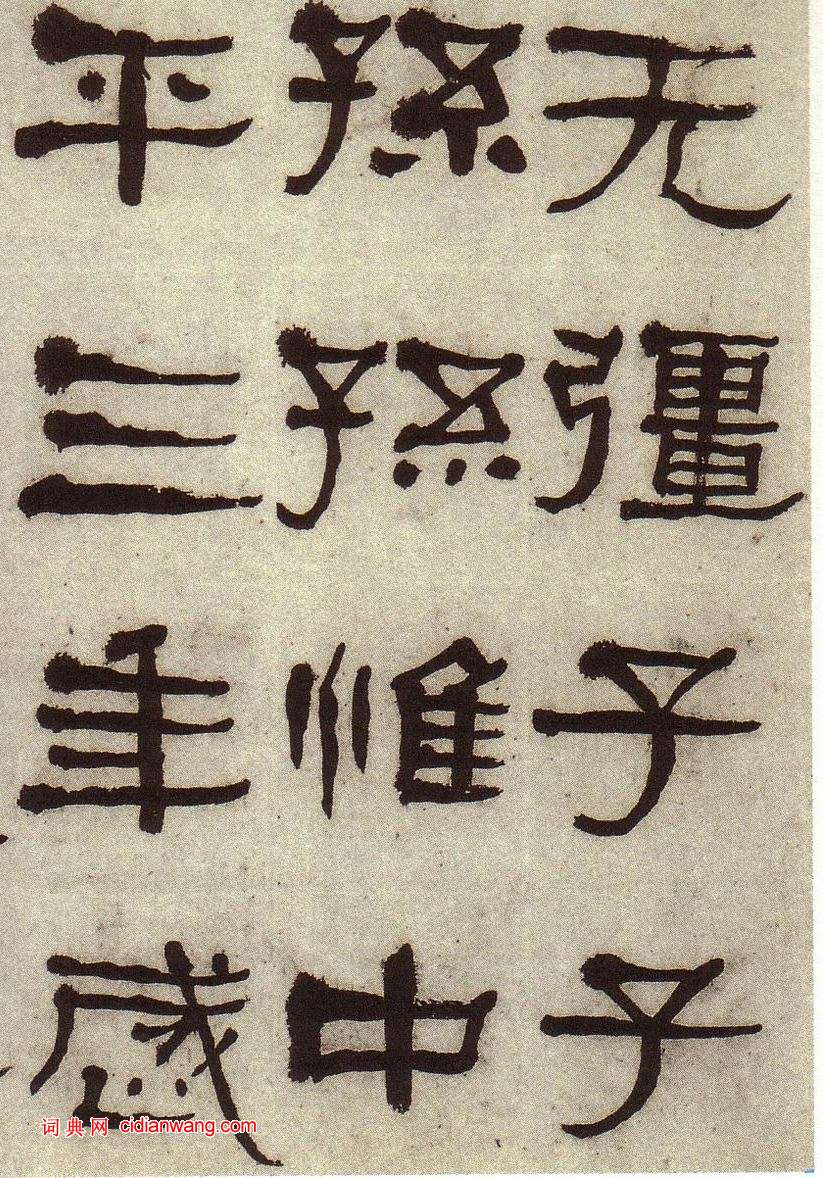 无彊子子
孫孫惟中
平三年感
词典网 cidianwang.com